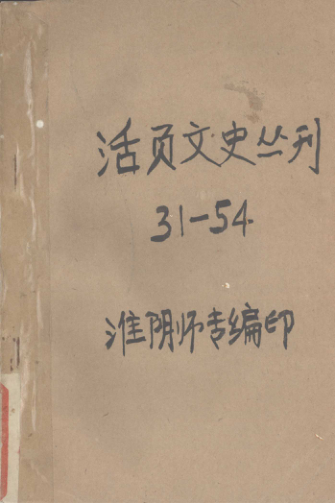 活页文史丛刊
31-54
淮阴师专编印